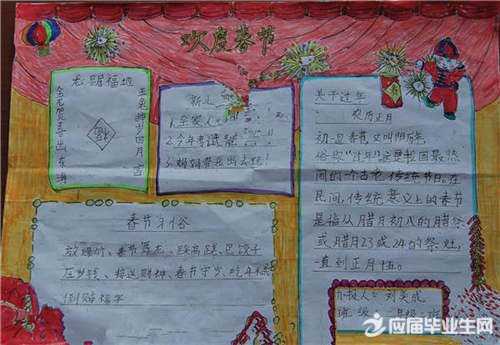 欢度春节
龙踞福地
金龙贺喜出东海
玉兔
四月
福
新
1.全家人
2.今年考试
3.妈妈带我出去玩!
春节习俗
放鞭炮、春节舞龙、踩高跷、包饺子
压岁钱、接送财神、春节守岁、吃年
倒贴福字
关于过年
农历正月
初一是春节又叫阴历年
俗称"过年"这是我国最热
间的一个古老传统节日。在
民间,传统意义上的春节
是指从腊月初八的腊祭
或腊月23或24的祭灶,
一直到正月十五。
办报人:刘
班级
应届毕业生网